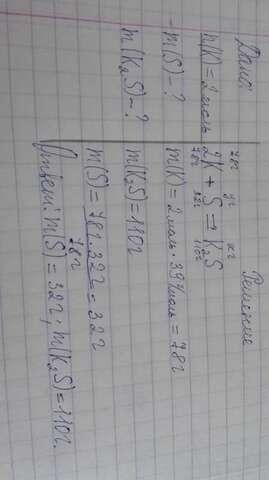 Дано:
n(K) = 2 моль
m(S) - ?
m(K₂S) - ?
Решение
78г yг xг
2K + S = K₂S
78г 32г 110г
m(K) = 2 моль · 39 г/моль = 78г
m(K₂S) = 110г
m(S) = 78г · 32г / 78г = 32г
Ответ: m(S) = 32г; m(K₂S) = 110г.